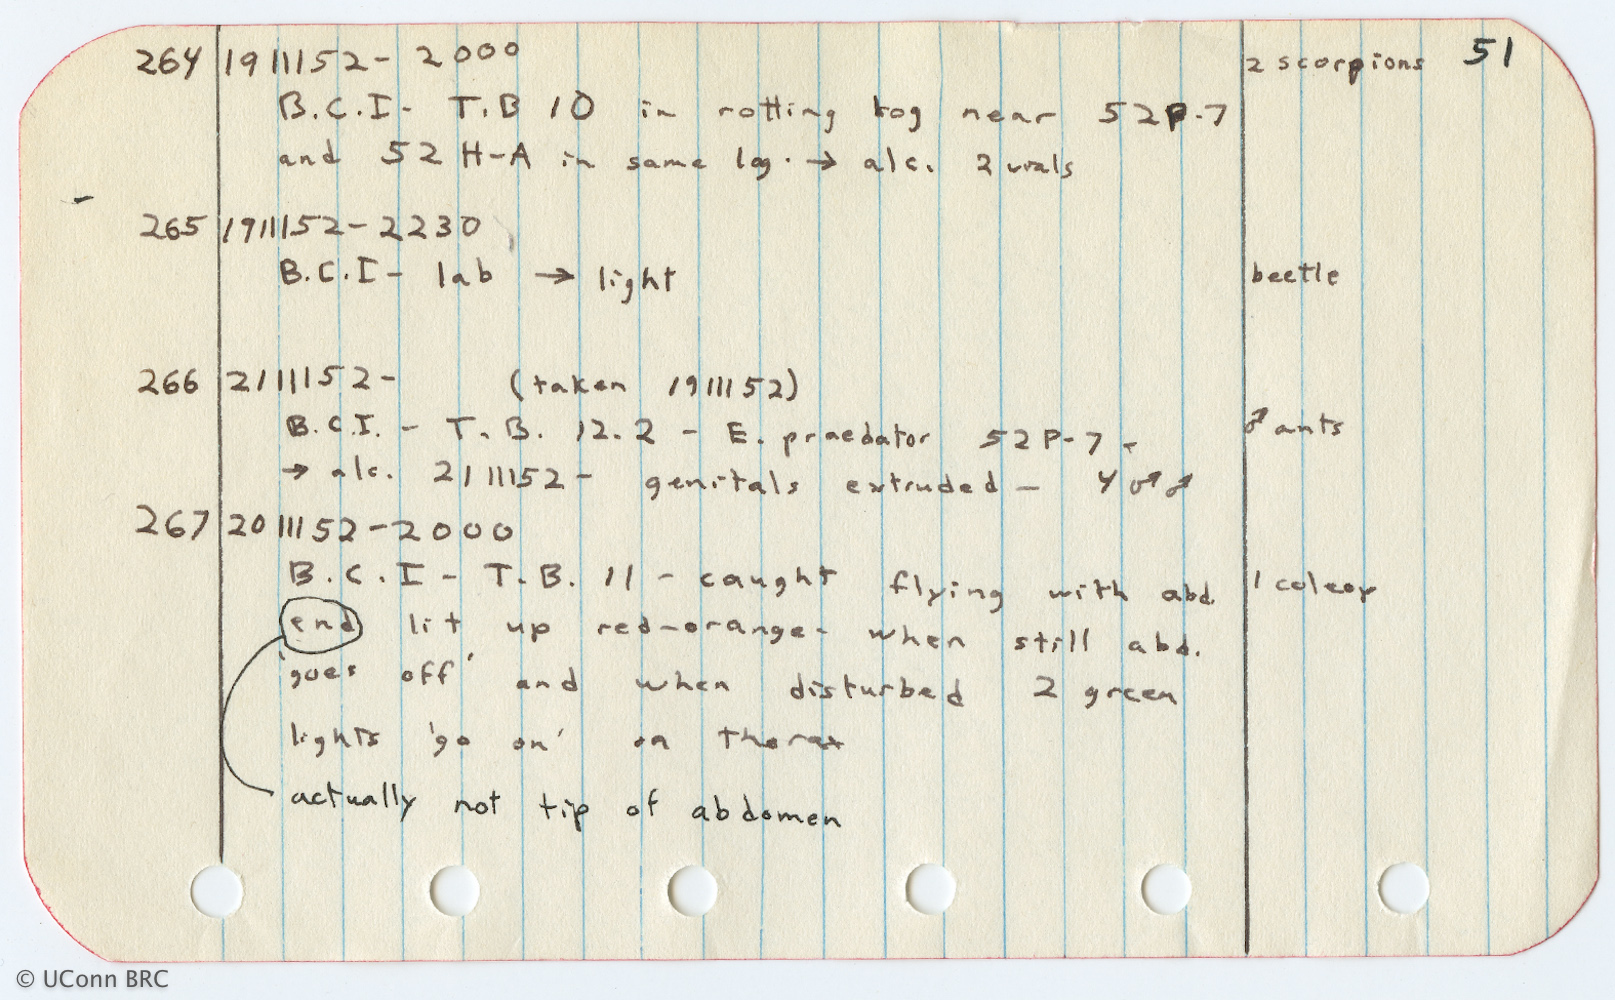 51
264 19III52- 2000 2 scorpions
B.C.I- T.B 10 in rotting log near 52P-7
and 52 H-A in same log. → alc. 2 vials
265 19III52- 2230
B.C.I- lab → light beetle
266 21III52- (taken 19III52)
B.C.I. - T.B. 12.2 - E. praedator 52P-7 - ♂ ants
→ alc. 21III52- genitals extruded - 4 ♂♂
267 20III52-2000
B.C.I- T.B. 11 - caught flying with abd. 1 coleop
end lit up red-orange- when still abd.
'goes off' and when disturbed 2 green
lights 'go on' on thorax
actually not tip of abdomen
© UConn BRC